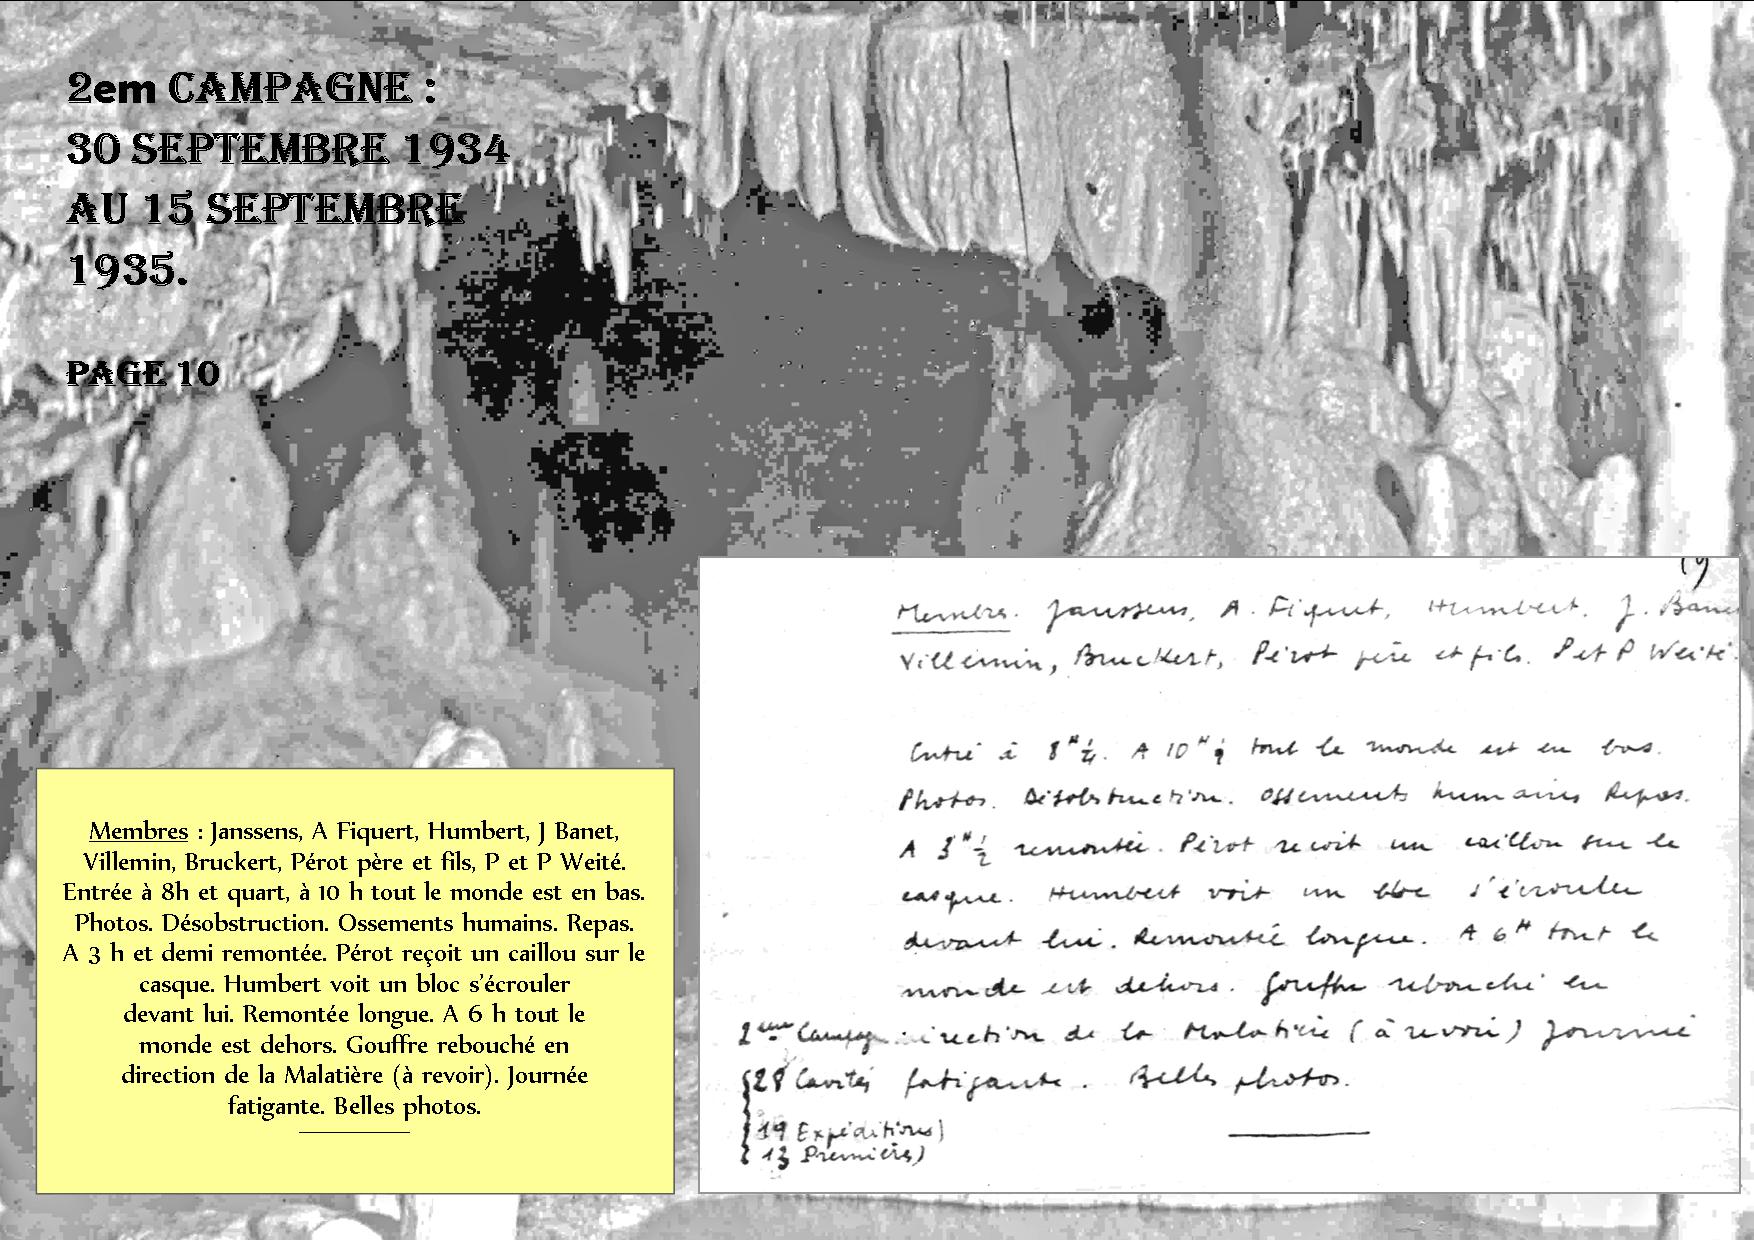 2em CAMPAGNE :
30 SEPTEMBRE 1934
AU 15 SEPTEMBRE
1935.
PAGE 10
Membres : Janssens, A Fiquert, Humbert, J Banet,
Villemin, Bruckert, Pérot père et fils, P et P Weité.
Entrée à 8h et quart, à 10 h tout le monde est en bas.
Photos. Désobstruction. Ossements humains. Repas.
A 3 h et demi remontée. Pérot reçoit un caillou sur le
casque. Humbert voit un bloc s'écrouler
devant lui. Remontée longue. A 6 h tout le
monde est dehors. Gouffre rebouché en
direction de la Malatière (à revoir). Journée
fatigante. Belles photos.
Membres. Janssens, A. Fiquet, Humbert. J. Bane
Villemin, Bruckert, Pérot père et fils. P et P Weité.
Entré à 8H 1/4. A 10H tout le monde est en bas.
Photos. Désobstruction. Ossements humains Repas.
A 3H 1/2 remontée. Pérot reçoit un caillou sur le
casque. Humbert voit un bloc s'écrouler
devant lui. Remontée longue. A 6H tout le
monde est dehors. Gouffre rebouché en
direction de la Malatière (à revoir) Journée
fatigante. Belles photos.
2ème Campag
28 Cavités
19 Expéditions)
13 Premières)